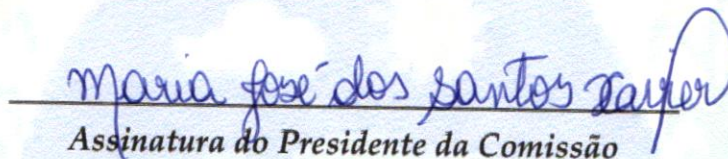 Maria José dos Santos Xavier
Assinatura do Presidente da Comissão